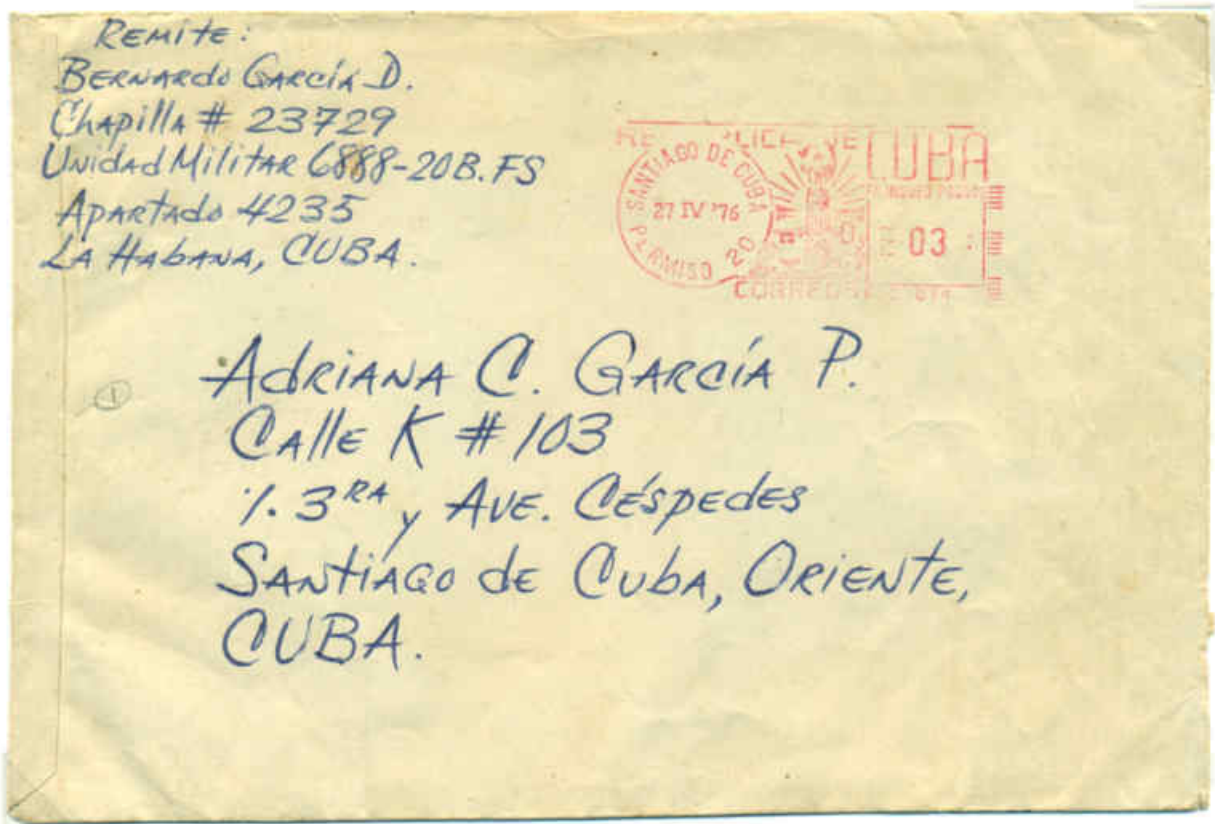 REMITE:
BERNARDO GARCÍA D.
Chapilla # 23729
UNIDAD MILITAR 6888-20B.FS
APARTADO 4235
LA HABANA, CUBA.
REPUBLICA DE CUBA
SANTIAGO DE CUBA
27 IV '76
PERMISO 20
03
CORREOS
ADRIANA C. GARCÍA P.
CALLE K # 103
%. 3RA y AVE. CÉSPEDES
SANTIAGO de CUBA, ORIENTE,
CUBA.
1